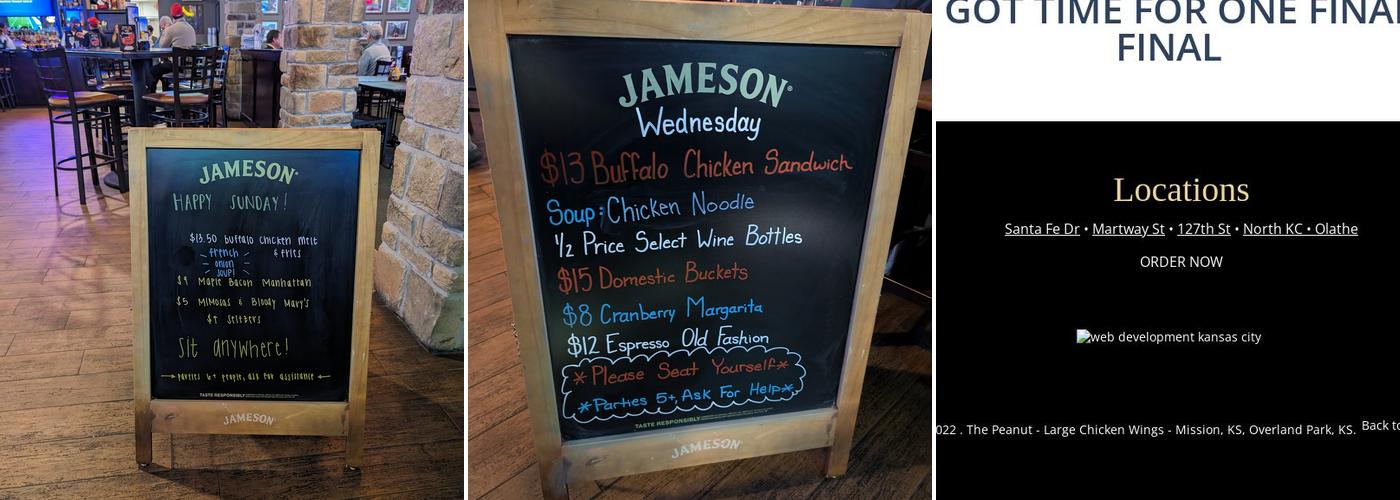 JAMESON
HAPPY SUNDAY!
$13.50 Buffalo Chicken Melt
& fries
french
onion
soup!
$9 Maple Bacon Manhattan
$5 Mimosas & Bloody Mary's
Seltzers
Sit anywhere!
parties 6+ people, ask for assistance
TASTE RESPONSIBLY
JAMESON
JAMESON®
Wednesday
$13 Buffalo Chicken Sandwich
Soup: Chicken Noodle
1/2 Price Select Wine Bottles
$15 Domestic Buckets
$8 Cranberry Margarita
$12 Espresso Old Fashion
*Please Seat Yourself*
*Parties 5+, Ask For Help*
TASTE RESPONSIBLY
JAMESON
GOT TIME FOR ONE FINAL
FINAL
Locations
Santa Fe Dr • Martway St • 127th St • North KC • Olathe
ORDER NOW
web development kansas city
022 . The Peanut - Large Chicken Wings - Mission, KS, Overland Park, KS. Back to